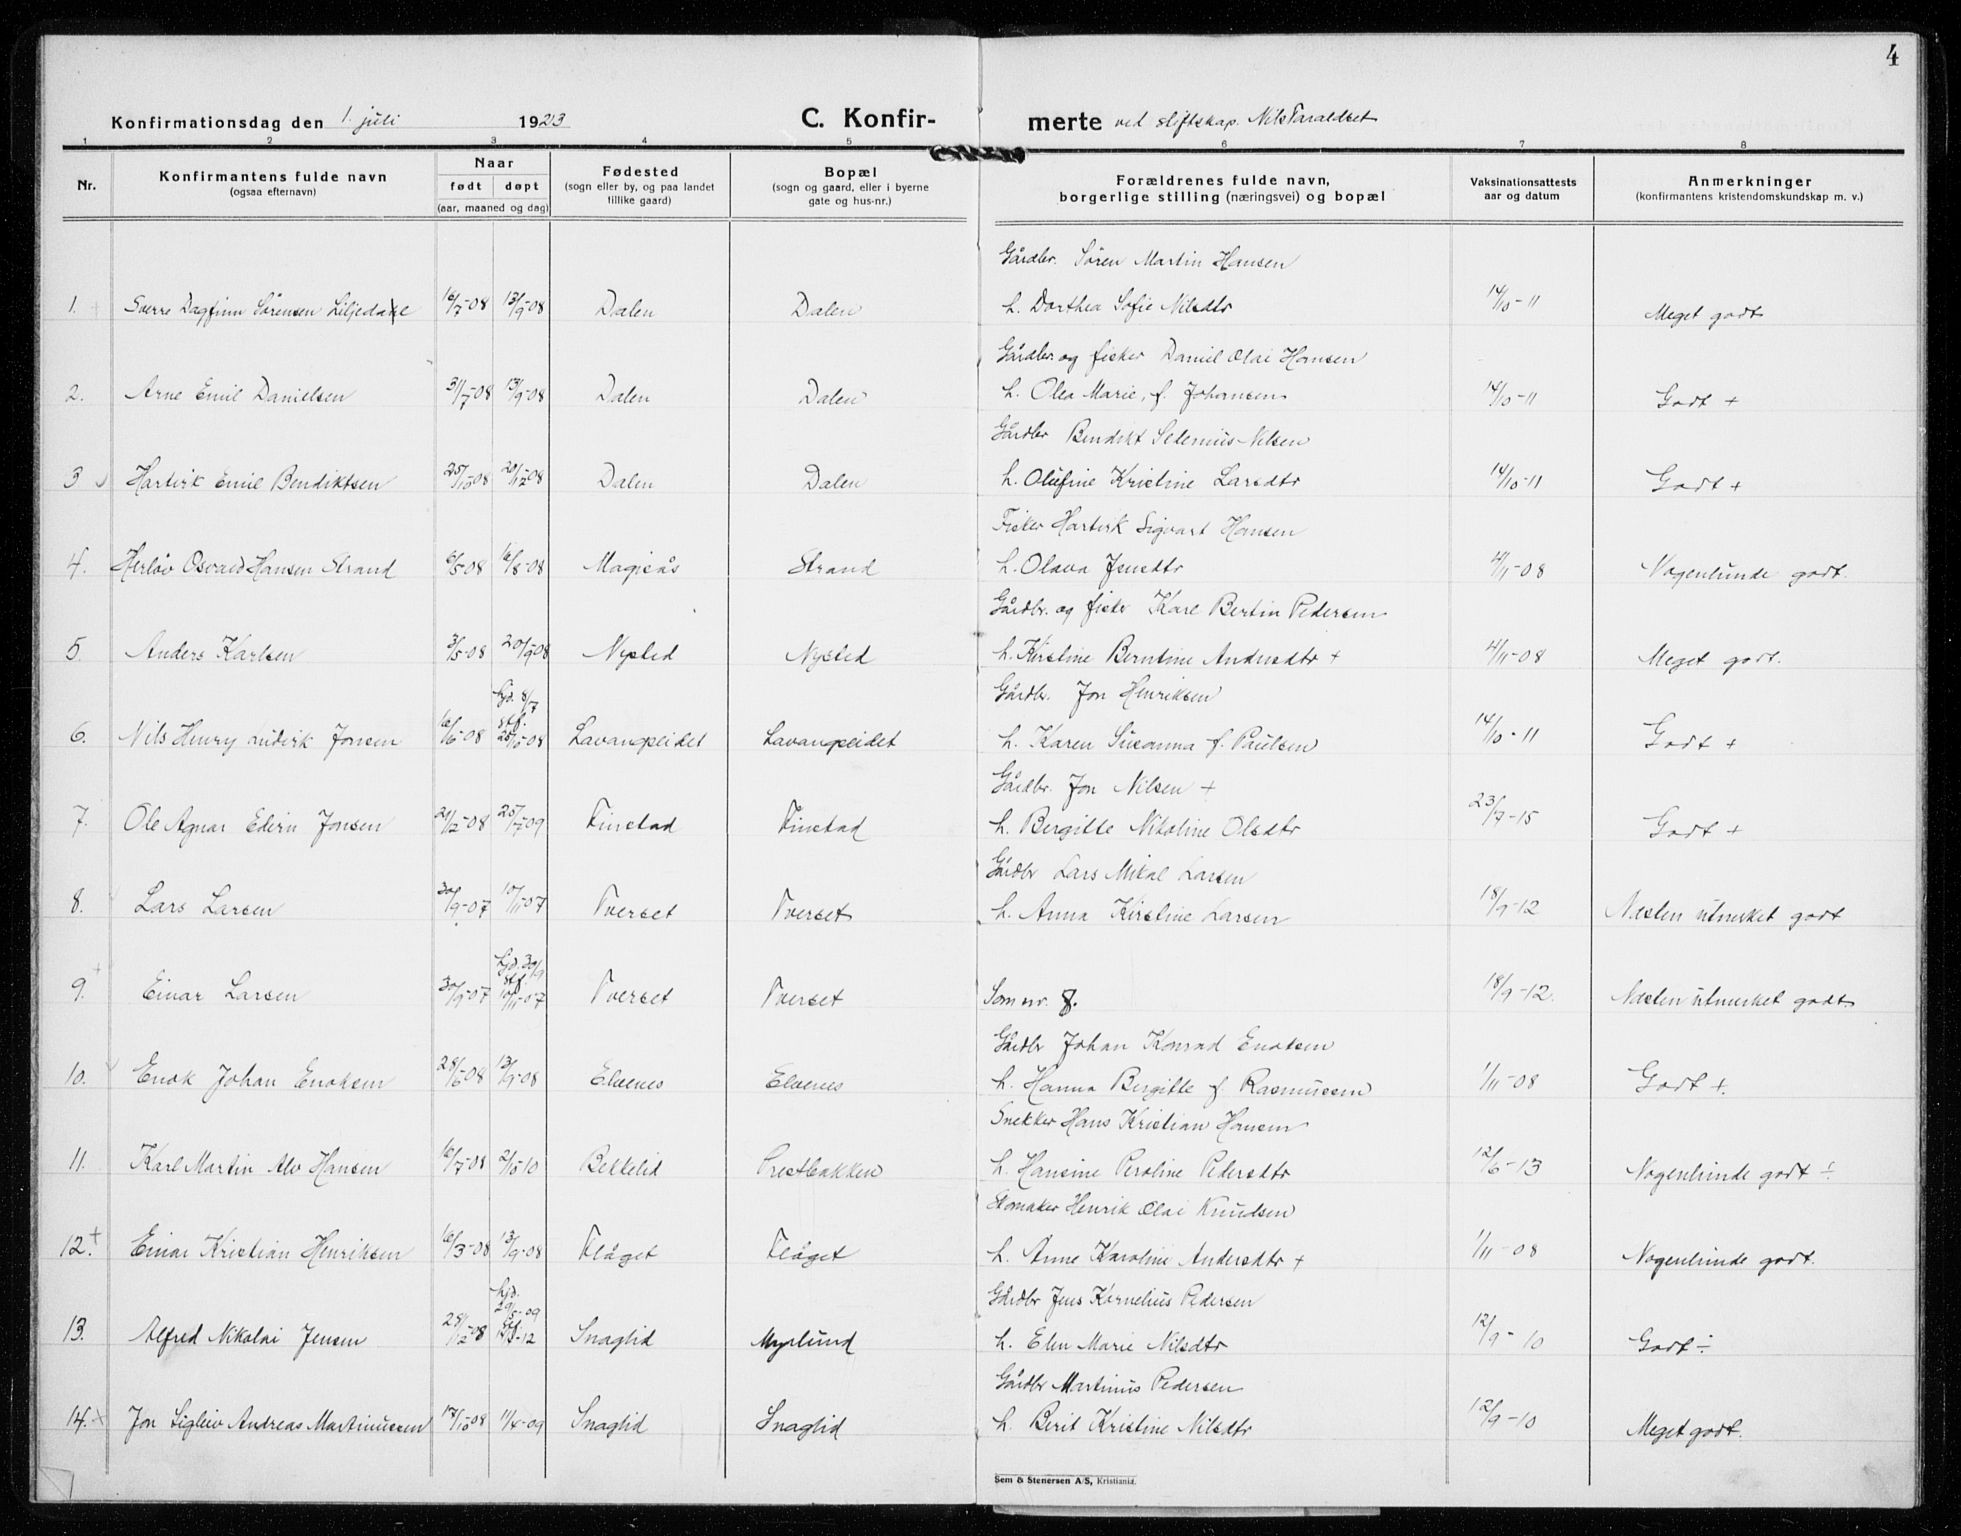 4
Konfirmationsdag den 1. juli 1923 C. Konfirmerte ved stiftskap. Nils Taraldset
1 2 3 4 5 6 7 8
Nr. Konfirmantens fulde navn Naar Fødested Bopæl Forældrenes fulde navn, Vaksinationsattests Anmerkninger
(ogsaa efternavn) født døpt (sogn eller by, og paa landet (sogn og gaard, eller i byerne borgerlige stilling (næringsvei) og bopæl aar og datum (konfirmantens kristendomskundskap m. v.)
(aar, maaned og dag) tillike gaard) gate og hus-nr.)
Gårdbr. Sören Martin Hansen
1. + Sverre Dagfinn Sörensen Liljedale 16/7-08 13/9-08 Dalen Dalen h. Dorthea Sofie Nilsdtr 14/10-11 Meget godt
Gårdbr. og fisker Daniel Olai Hansen
2. Arne Emil Danielsen 31/7-08 13/9-08 Dalen Dalen h. Olea Marie, f. Johansen 14/10-11 Godt +
Gårdbr Bendikt Selenius Nilsen
3 Hartvik Emil Bendiktsen 25/10-08 20/12-08 Dalen Dalen h. Olufine Kristine Larsdtr 14/10-11 Godt +
Fisker Hartvik Sigvart Hansen
4. Herlöv Osvald Hansen Strand 6/5-08 16/8-08 Strand h. Olava Jensdtr 4/11-08 Nogenlunde godt.
Gårdbr. og fisker Karl Bertin Pedersen
5. Anders Karlsen 3/5-08 20/9-08 Nysted Nysted h. Kirstine Berntine Andersdtr + 4/11-08 Meget godt.
hjd. 8/7 Gårdbr. Jon Henriksen
stf.
6. Nils Henry Ludvik Jonsen 16/6-08 25/10-08 Lavangseidet Lavangseidet h. Karen Susanna f. Paulsen 14/10-11 Godt +
Gårdbr. Jon Nilsen +
7. Ole Agnar Edvin Jonsen 21/12-08 25/7-09 Finstad Finstad h. Bergitte Nikoline Olsdtr 23/7-15 Godt +
Gårdbr Lars Mikal Larsen
8. Lars Larsen 30/9-07 10/11-07 Tverset Tverset h. Anna Kirstine Larsen 18/9-12 Næsten utmerket godt
+ hjd. 30/9
stf.
9. Einar Larsen 30/9-07 10/11-07 Tverset Tverset Som nr. 8. 18/9-12. Næsten utmerket godt.
Gårdbr Johan Konrad Enoksen
10. Enok Johan Enoksen 28/6-08 13/9-08 Elvenes Elvenes h. Hanna Bergitte f. Rasmussen 1/11-08 Godt +.
Snekker Hans Kristian Hansen
11. Karl Martin Alv Hansen 16/7-08 2/5-10 Bekkelid Prestbakken h. Hansine Peroline Pedersdtr 12/6-13 Nogenlunde godt ÷
Skomaker Henrik Olai Knudsen
12. + Einar Kristian Henriksen 16/3-08 13/9-08 Flåget Flåget h. Anne Karoline Andersdtr + 1/11-08 Nogenlunde godt.
hjd. Gårdbr Jens Kornelius Pedersen
29/5-09
stf.
13. Alfred Nikolai Jensen 28/12-08 Snaglid Myrlund h. Elen Marie Nilsdtr 12/9-10 Godt ÷
Gårdbr Martinus Pedersen
14. + Jon Sigleiv Andreas Martinussen 17/10-08 11/4-09 Snaglid Snaglid h. Berit Kristine Nilsdtr 12/9-10 Meget godt.
Sem & Stenersen A/S, Kristiania.